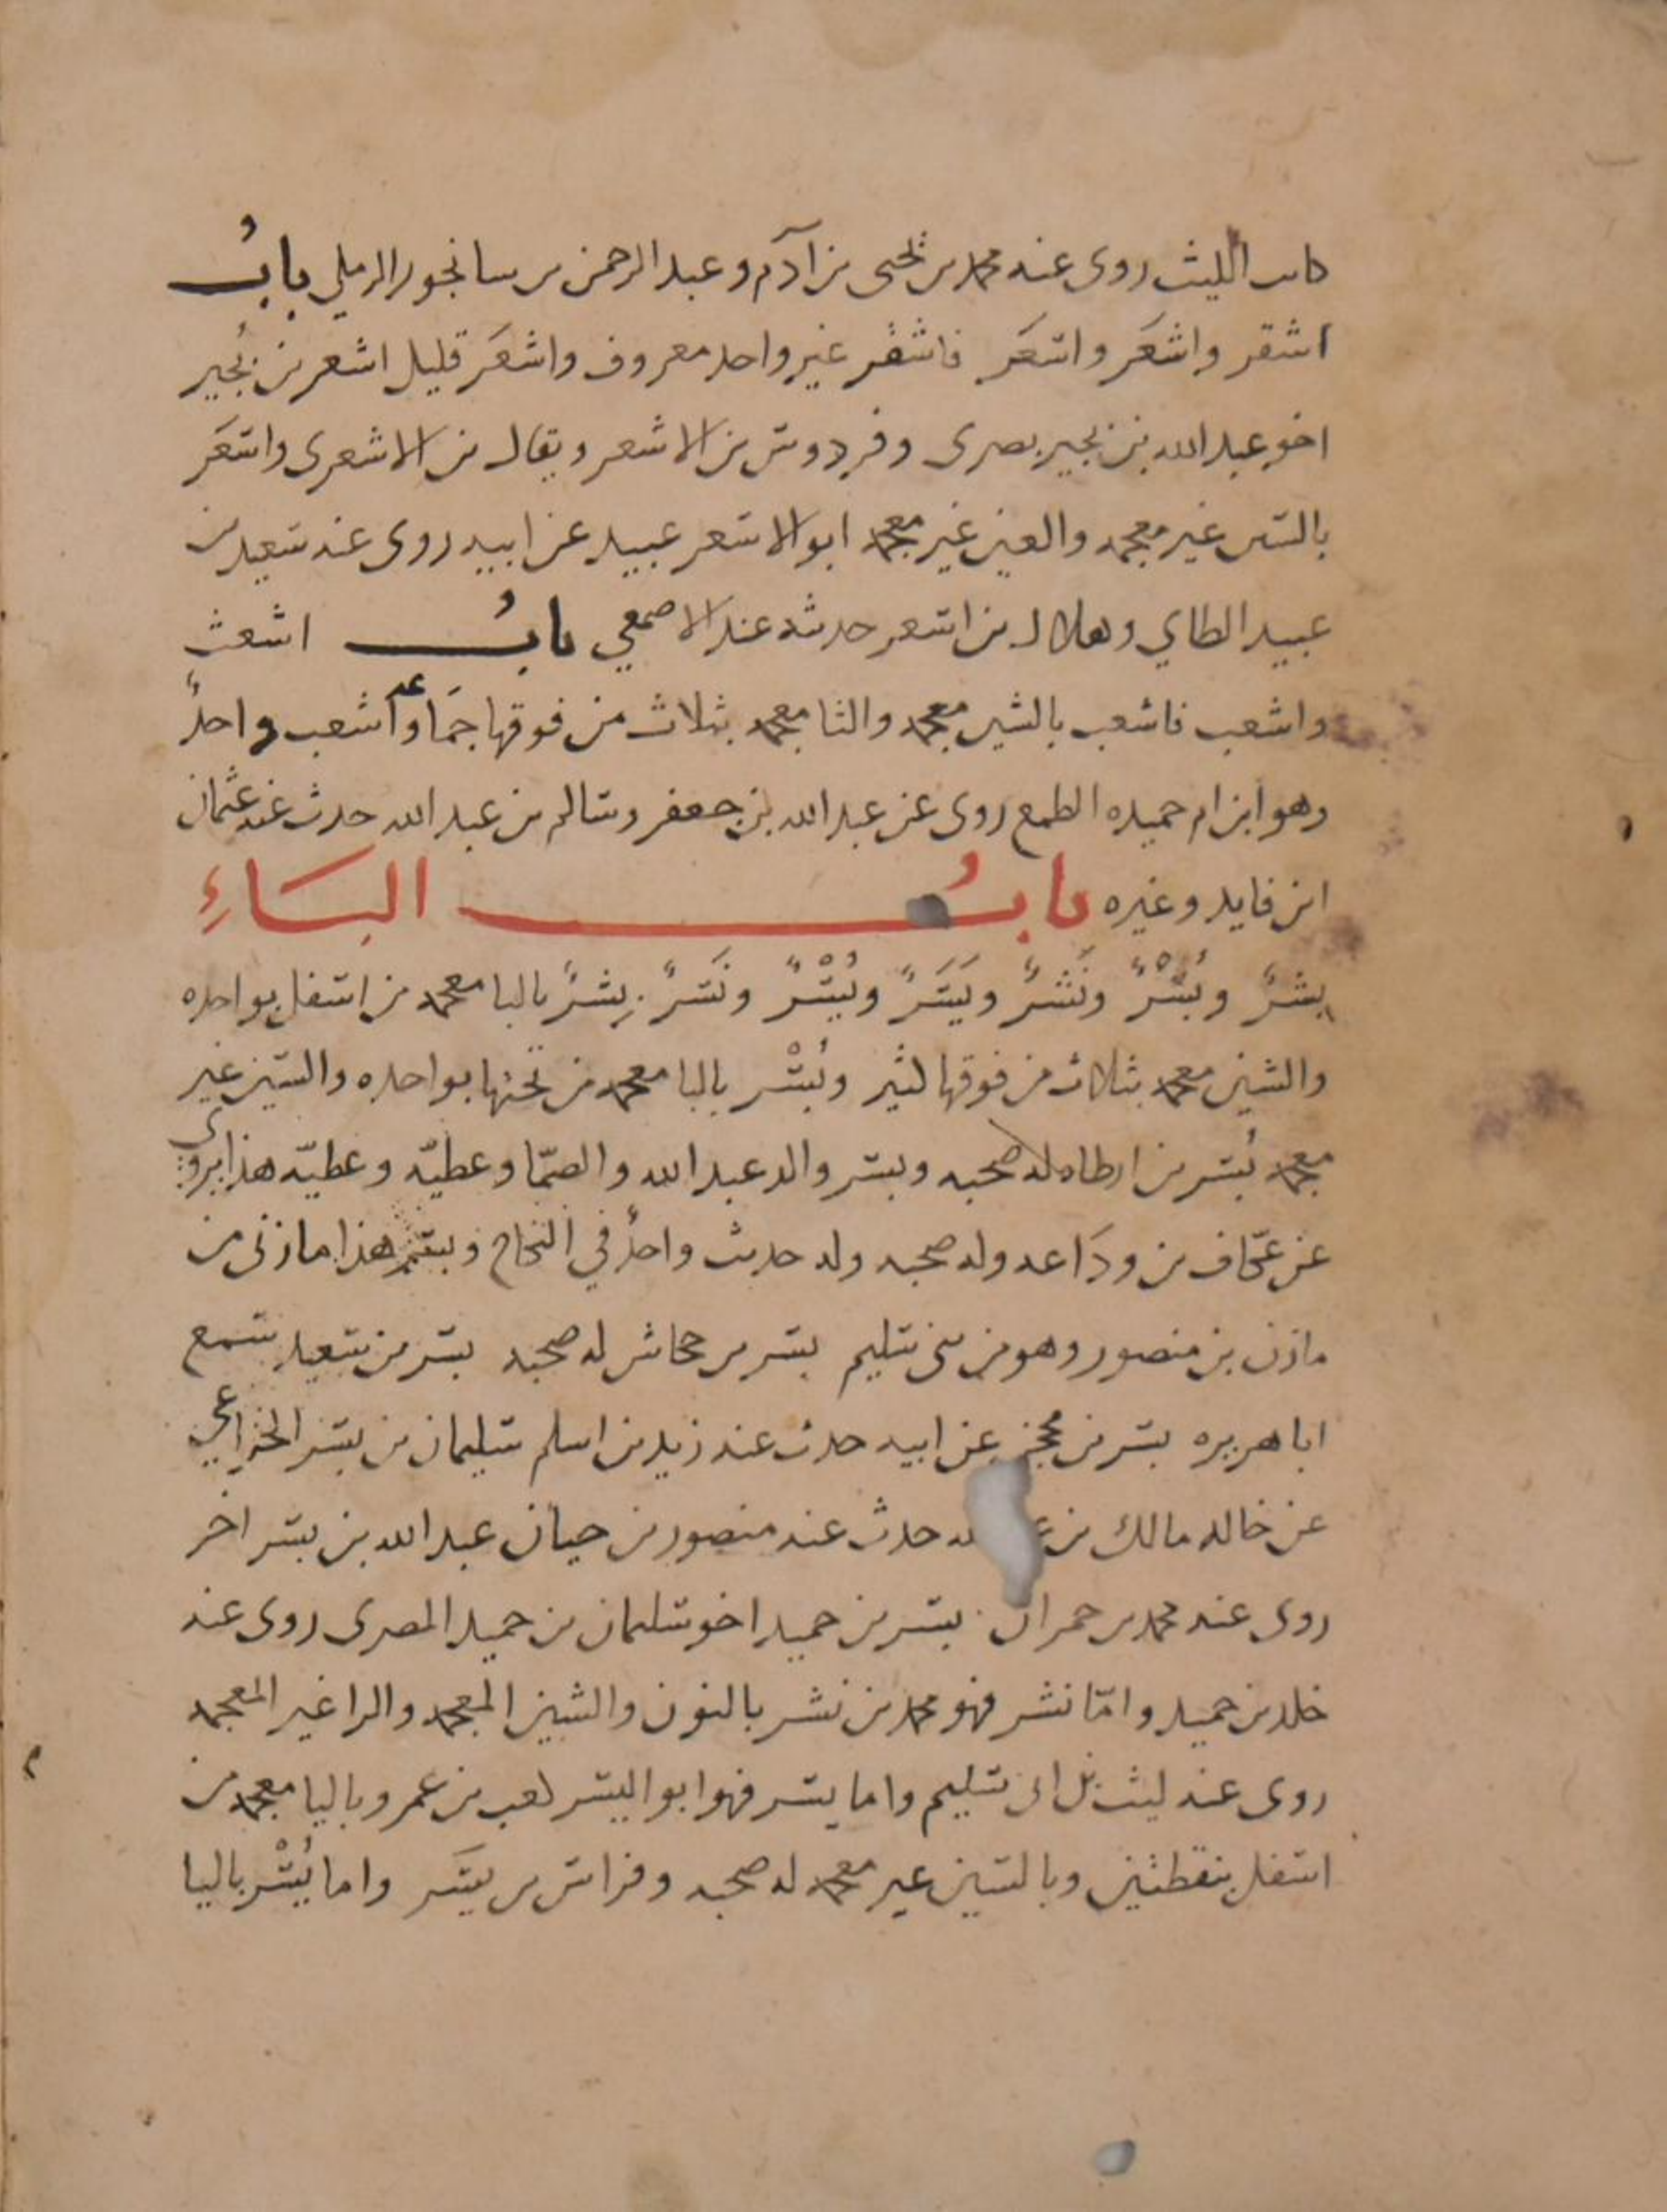 كاتب الليث روى عنه محمد بن يحيى بن آدم وعبد الرحمن بن سانجور الرملي بابُ
اشقر واشعَر واسعَر فاشقر غير واحد معروف واشعَر قليل اشعر بن بُجير
اخو عبد الله بن بجير بصرى وفردوس بن الاشعر ويقال بن الاشعرى واسعَر
بالسين غير معجمه والعين غير معجمه ابو الاسعر عبيد عن ابيه روى عنه سعيد بن
عبيد الطاي وهلال بن اسعر حدث عنه الاصمعي بابُ اشعث
واشعب فاشعب بالشين معجمه والثا معجمه بثلاث من فوقها جمَاعه وأشعب واحدٌ
وهو ابن ام حميده الطمع روى عن عبد الله بن جعفر وسالم بن عبد الله حدث عنه عثمان
ابن فايد وغيره بابُ البَاءِ
بِشرٌ وبُسْرٌ ونَشرٌ ويَسَرٌ ويُسْرٌ ونَسرٌ بِشرٌ بالبا معجمه من اسفل بواحده
والشين معجمه بثلاث من فوقها كثير وبُسْر بالبا معجمه من تحتها بواحده والسين غير
معجمه بُسر بن ارطاه له صحبه وبسر والد عبد الله والصمّا وعطيّه وعطيّه هذا يروى
عن عكّاف بن ودَاعه وله صحبه وله حديث واحدٌ في النكاح وبسر هذا مازنى من
مازن بن منصور وهو من بنى سليم بسر بن جحاش له صحبه بسر بن سعيد سمع
ابا هريره بسر بن محجن عن ابيه حدث عنه زيد بن اسلم سليمان بن بسر الخزاعي
عن خاله مالك بن حدث عنه منصور بن حيان عبد الله بن بسر اخر
روى عنه محمد بن حمران بسر بن حميد اخو سليمان بن حميد المصرى روى عنه
خلد بن حميد وامّا نشر فهو محمد بن نشر بالنون والشين المعجمه والرا غير المعجمه
روى عنه ليث بن ابى سليم واما يسر فهو ابو اليسر كعب بن عمرو باليا معجمه من
اسفل بنقطتين وبالسين غير معجمه له صحبه وفراس بن يسَر واما يُسْر باليا